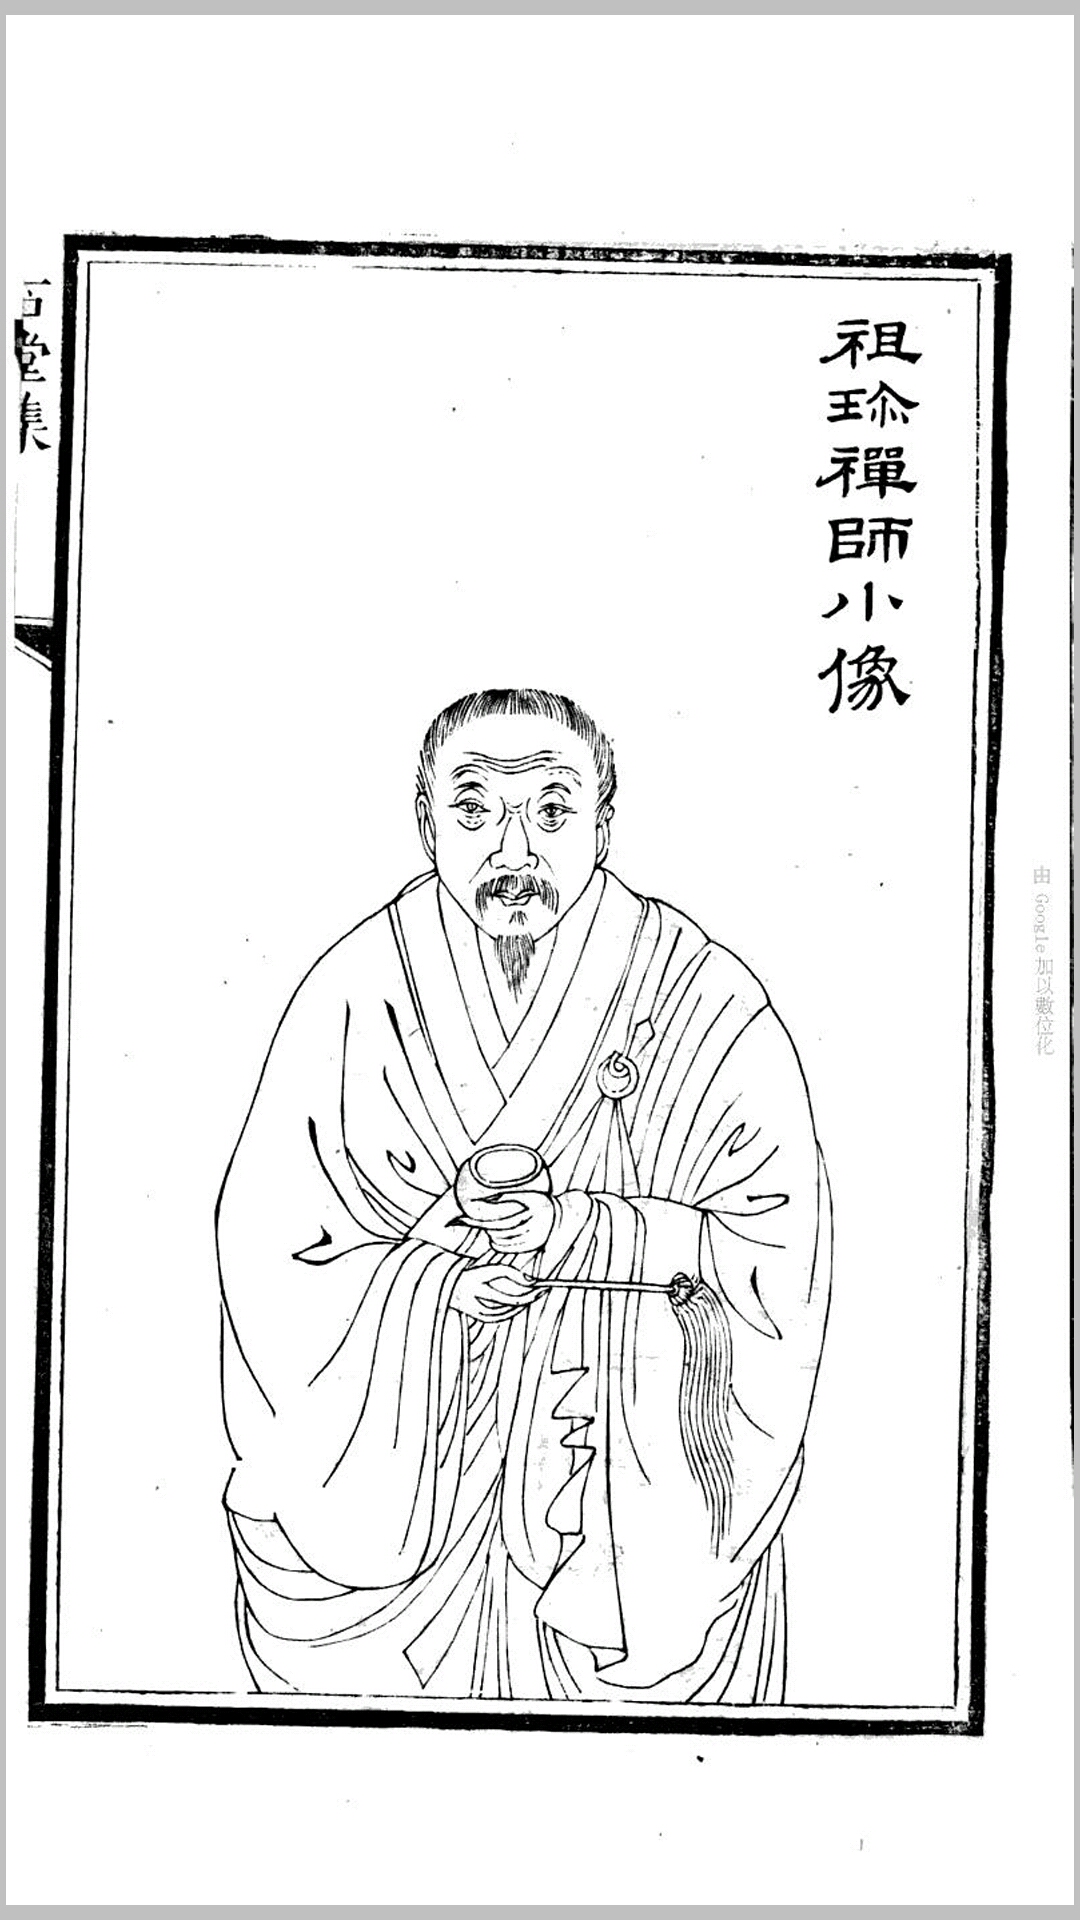 祖珎禪師小像
石堂集
由 Google 加以數位化